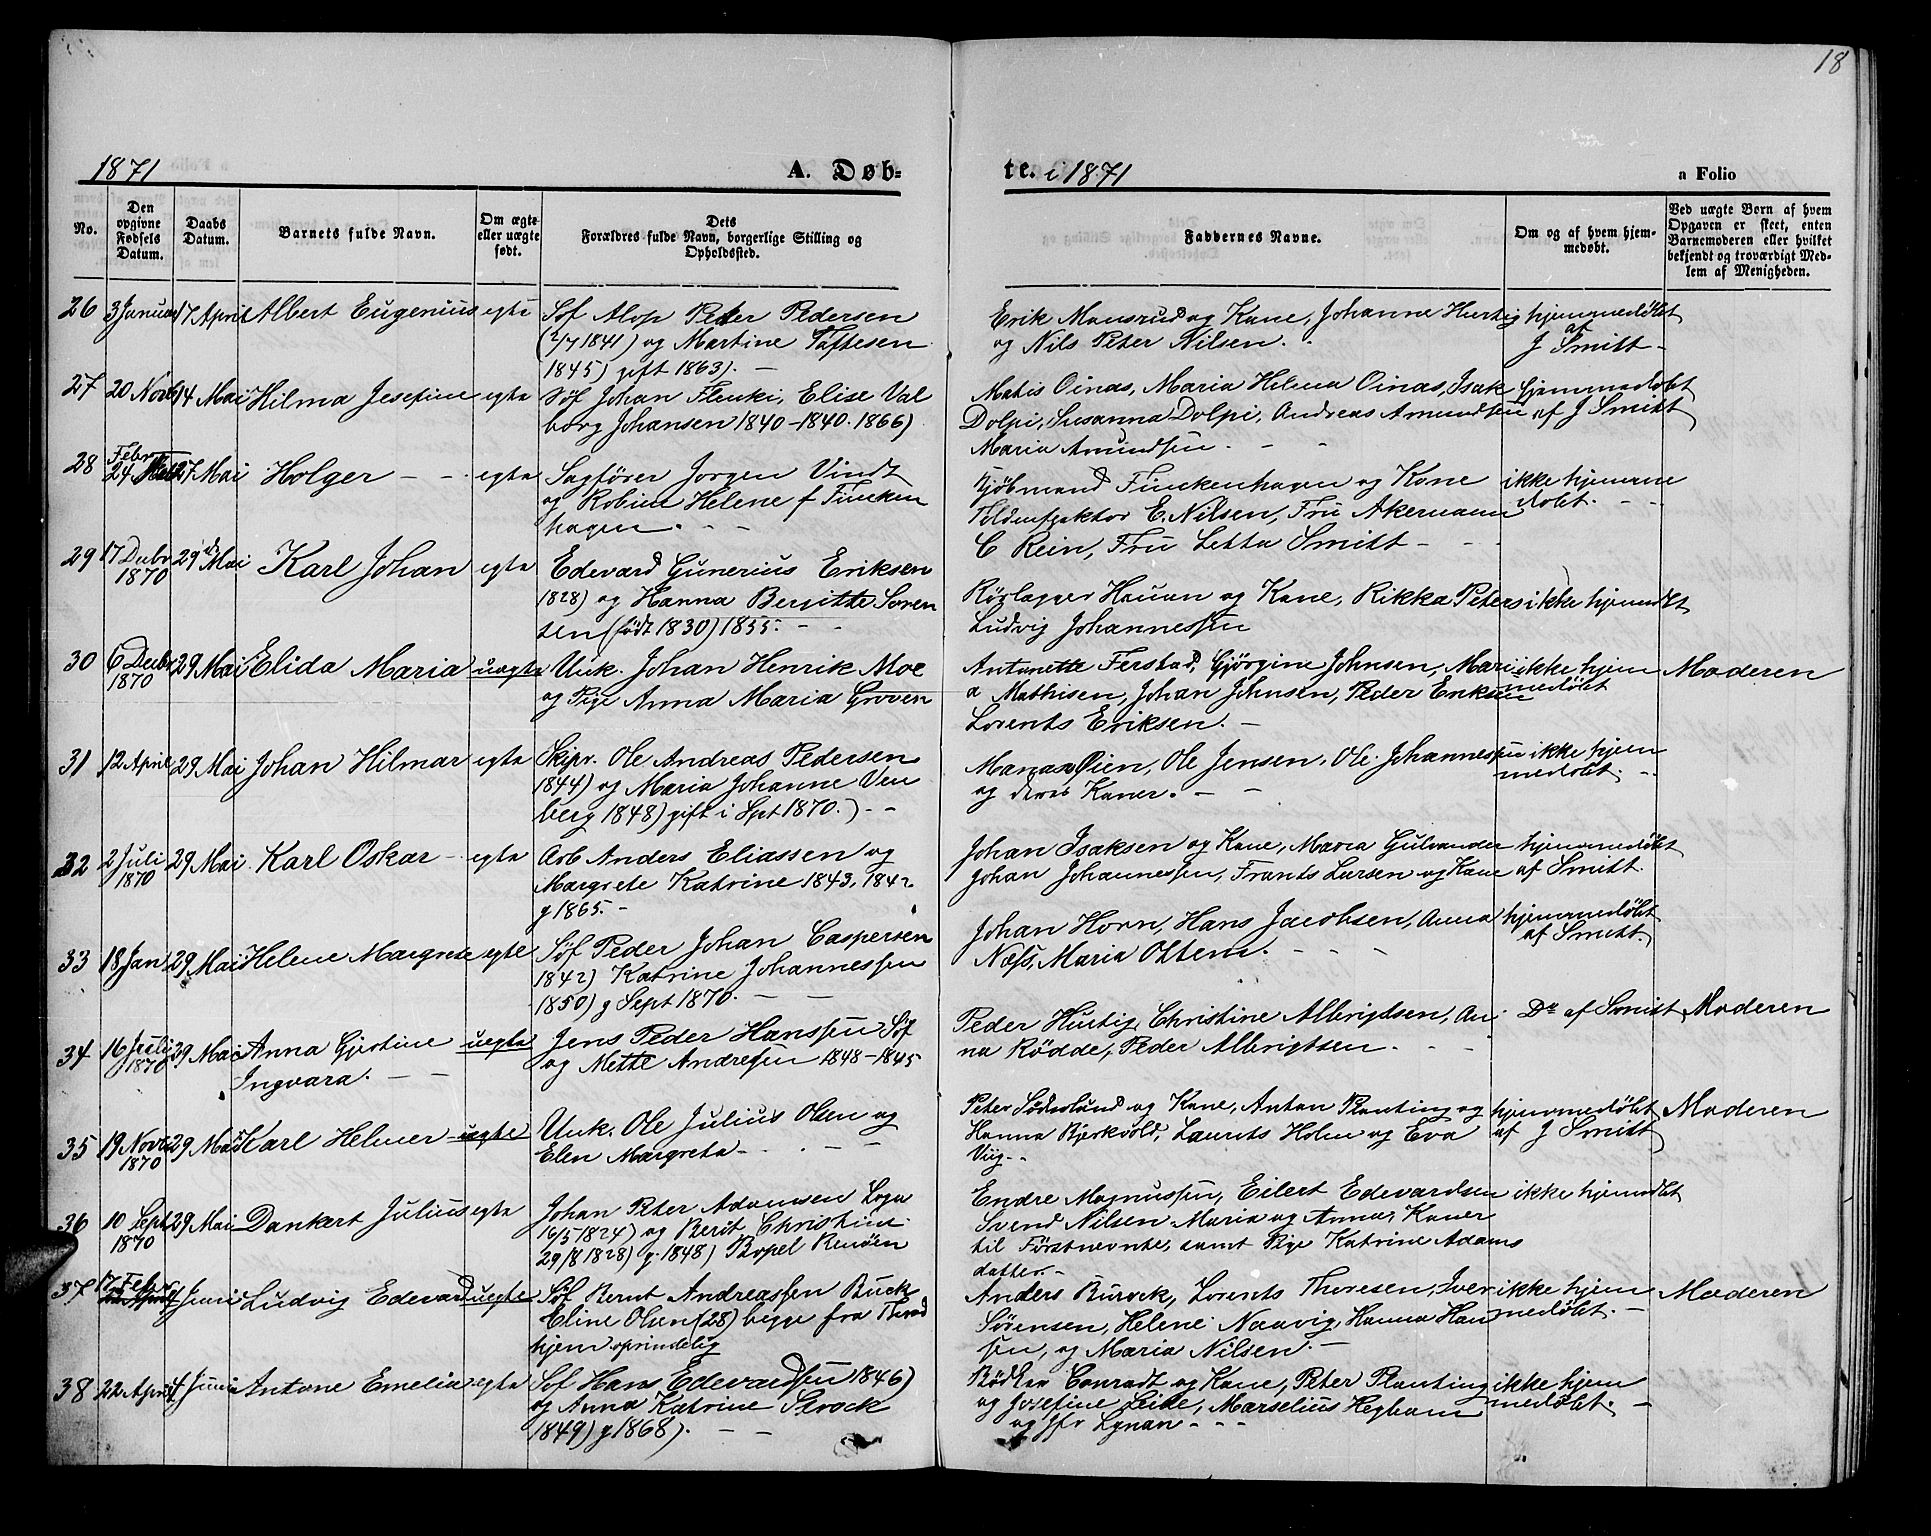 18
1871
A. Døb-
te. i 1871
a Folio
No.
Den opgivne Fødsels Datum.
Daabs Datum.
Barnets fulde Navn.
Om ægte eller uægte født.
Dets Forældres fulde Navn, borgerlige Stilling og Opholdssted.
Faddernes Navne.
Om og af hvem hjemmedøbt.
Ved uægte Børn af hvem Opgaven er skeet, enten Barnemoderen eller hvilket bekjendt og troværdigt Medlem af Menigheden.
26 3 Januar 17 April Albert Eugenius egte Søf Alop Peter Pedersen
(2/7 1841) og Martine Toftesen
1845) gift 1863). -
Erik Monsrud og Kane, Johanne Hurtig
og Nils Peter Nilsen. -
hjemmedøbt
af
J Smitt -
27 20 Novb 14 Mai Hilma Josefine egte Søf Johan Flenki, Elise Val
borg Johansen 1840 - 1840. 1866)
Matis Oinas, Maria Helena Oinas, Isak
Dolpi, Susanna Dolpi, Andreas Amundsen
Maria Amundsen. - -
hjemmedøbt
af J Smitt
28 Febr
24 27 Mai Holger - - egte Sagfører Jørgen Vindt
og Robine Helene f Fincken
hagen. - -
Kjøbmand Finckenhagen og Kone
E. Nilsen, Fru Akermann
C Rein, Fru Letta Smitt - -
ikke hjemme
døbt. - -
29 17 Decbr
1870 29 Mai Karl Johan egte Edevard Gunerius Eriksen
1828) og Hanna Bergitte Soren
sen (født 1830) 1855. - -
Rørlægger Hauan og Kane, Rikka Peters
Ludvig Johannessen
ikke hjemdøbt
30 6 Decbr
1870 29 Mai Elida Maria uægte Unk. Johan Henrik Moe
og Pige Anna Maria Groven
Antonette Ferstad, Gjørgine Johnsen, Mari
a Mathisen, Johan Johnsen, Peder Eriksen
Lorents Eriksen. -
ikke hjem
medøbt
Moderen
31 12 April 29 Mai Johan Hilmar egte Skipr. Ole Andreas Pedersen
1844) og Maria Johanne Ven
berg 1848) gift i Sept 1870.) - -
Manas Øien, Ole Jensen, Ole Johannessen
og deres Kaner. - -
ikke hjem
medøbt. -
32 2 Juli
1870 29 Mai Karl Oskar - egte Arb Anders Eliassen og
Margrete Katrine 1843, 1842
g 1865. -
Johan Isaksen og Kane, Maria Gulvander
Johan Johannessen, Frants Larsen og Kane
hjemmedøbt
af Smitt.
33 18 Jan 29 Mai Helene Margrete egte Søf Peder Johan Caspersen
1842) Katrine Johannessen
1850) g Sept 1870. - -
Johan Horn, Hans Jacobsen, Anna
Næss, Maria Ottem. - - -
hjemmedøbt
af Smitt.
34 16 Juli
1870 29 Mai Anna Gjertine
Ingvara. - - uegte Jens Peder Hanssen Søf
og Mette Andresen 1848 - 1845
Peder Hurtig, Christine Albrigtsen, An
na Rødde, Peder Albrigtsen. - -
Do af Smitt
Moderen
35 19 Novr
1870 29 Mai Karl Helmer - uegte Unk. Ole Julius Olsen og
Elen Margreta - - -
Peter Søderlund og Kane, Anton Planting og
Hanna Bjerkvold, Laurits Holm og Eva
Viig. -
hjemmedøbt
af J Smitt
Moderen
36 10 Sept
1870 29 Mai Dankert Julius egte Johan Peter Adamsen Loga
16/5 1824) og Berit Christine
29/8 1828) g. 1848) Bopel Renøen
Endre Magnussen, Eilert Edevardsen
Svend Nilsen Maria og Anna, Kaner
til Førstnevnte, samt Pige Katrine Adams
datter. -
ikke hjemdøbt
37 17 Febr
4 Juni Ludvig Edevard uegte Søf Bernt Andreassen Buck
Eline Olsen (28) begge fra Trond
hjem oprindelig
Anders Burock, Lorents Thoresen, Iver
Sørensen, Helene Naavig, Hanna Han
sen, og Maria Nilsen. -
ikke hjem
medøbt. -
Moderen
38 22 April 4 Juni Antone Emelia egte Søf Hans Edevardsen 1846)
og Anna Katrine Strock
1849) g 1868). - -
Bødker Conradt og Kane, Peter Planting
og Josefine Leide, Marselius Hegbom
og Jfr Lynan - - -
ikke hjem
medøbt. -